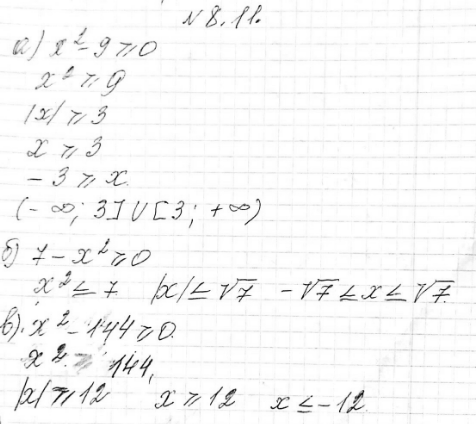 № 8.11.
а) x² - 9 ⩾ 0
x² ⩾ 9
|x| ⩾ 3
x ⩾ 3
- 3 ⩾ x.
(- ∞; 3] U [3; + ∞)
б) 7 - x² ⩾ 0
x² ≤ 7 |x| ≤ √7 - √7 ≤ x ≤ √7.
в). x² - 144 ⩾ 0.
x² ⩾ 144,
|x| ⩾ 12 x ⩾ 12 x ≤ - 12